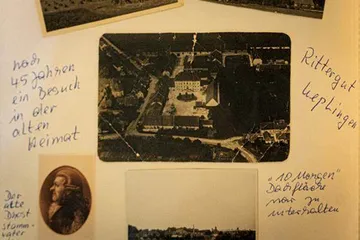 nach
45 Jahren
ein Besuch
in der
alten
Heimat
Rittergut
Heplingen
Der
alte
Stamm-
vater
"10 Morgen"
Dachfläche
war zu
unterhalten